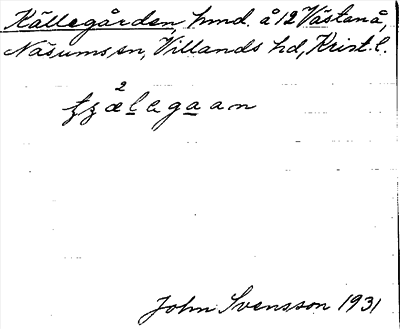 Källegården, hmd. å 12 Västanå,
Näsums sn, Villands hd, Krist. l.
2
ɕæl̲ega̲an
John Svensson 1931